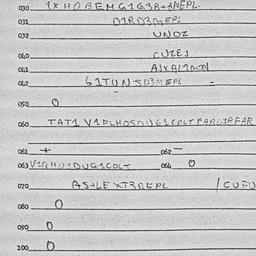 030 1XHOBEMG1G3R+ANEPL
031 D1RD3MEPL
032 UNOZ
040 CUZEJ
041 A1XAL1M-N
042 G1TUNSD3MEPL =
050 0
060 TAT1 V1FLHOSDUG1COLTPAR
061 +
062 -
063 DUG1COLT
064 0
070 AS+LEXT3REPL /CUFU
080 0
090 0
100 0